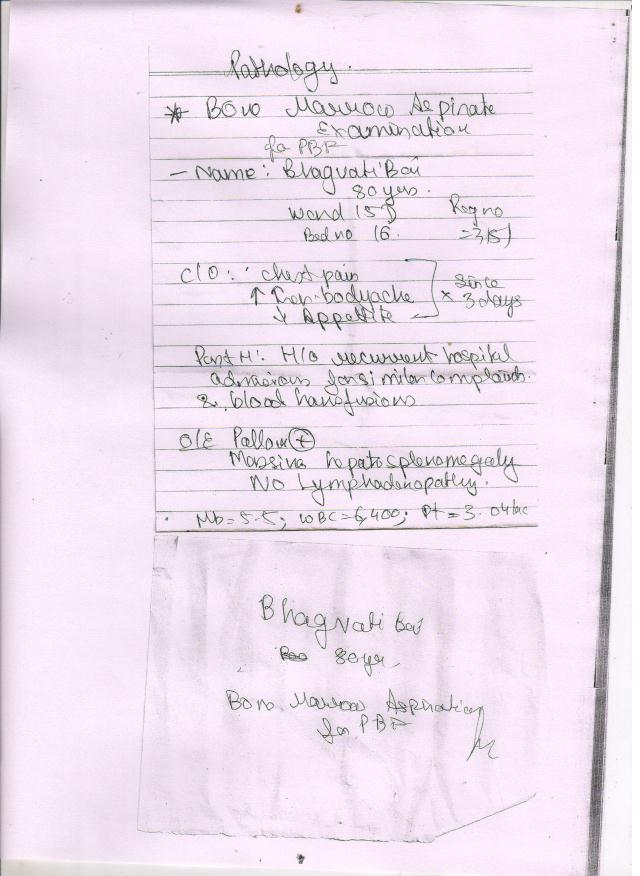 Pathology.
* Bone Marrow Aspirate
Examination
for PBF
- Name: Bhagvati Bai
80 yrs.
Ward 15 Regno
Bed no 16.
C/O: chest pain
↑ bodyache since
↓ Appetite x 3 days
Past H: H/o recurrent hospital
admissions for similar complaints.
& blood transfusions
O/E Pallor (+)
Massive hepatosplenomegaly
No Lymphadenopathy.
Hb = 5.5; WBC = 6,400; Pt = 3.04 lac
Bhagvati Bai
80 yr
Bone Marrow Aspiration
for PBF